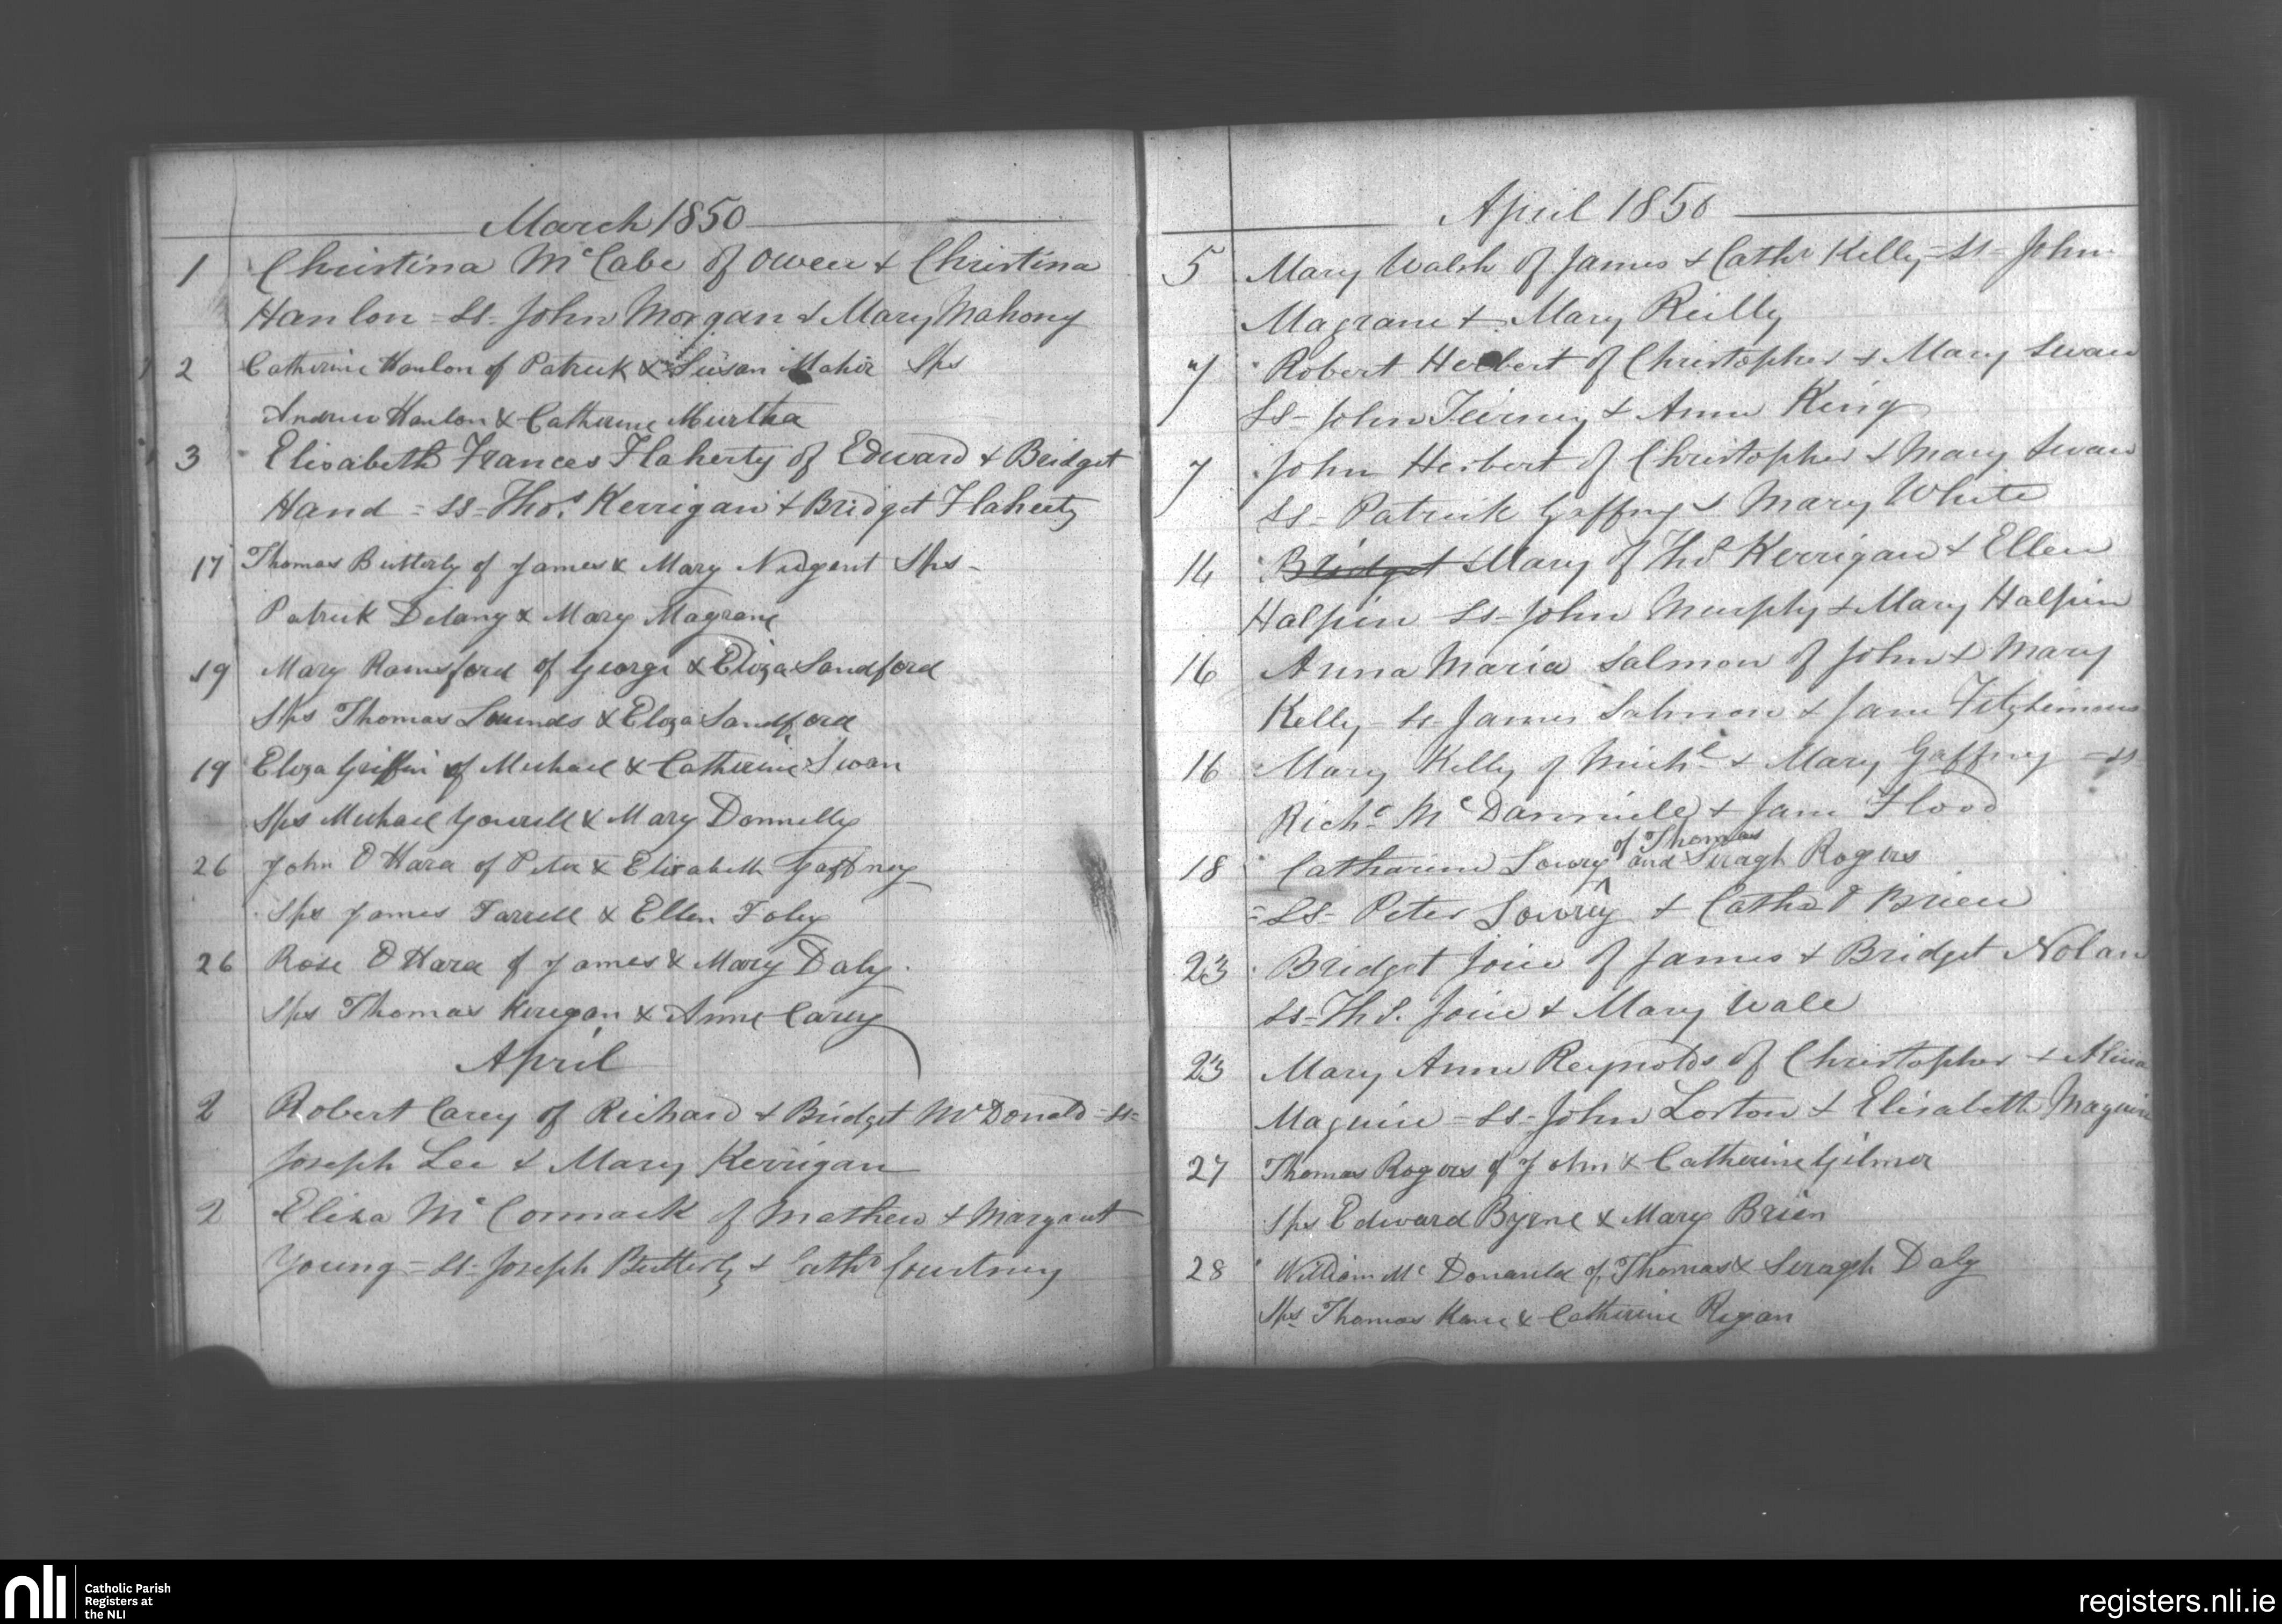 March 1850
1 Christina McCabe of Owen & Christina
Hanlon - Ss - John Morgan & Mary Mahony
2 Catherine Hanlon of Patrick & Susan Maher Sps
Andrew Hanlon & Catherine Murtha
3 Elisabeth Frances Flaherty of Edward & Bridget
Hand = SS = Thos. Kerrigan & Bridget Flaherty
17 Thomas Butterly of James & Mary Nugent Sps -
Patrick Delany & Mary Magrane
19 Mary Rainsford of George & Eliza Sandford
Sps Thomas Saunds & Eliza Sandford
19 Eliza Griffin of Michael & Catherine Swan
Sps Michael Yourell & Mary Donnelly
26 John O Hara of Peter & Elisabeth Gaffney
Sps James Farrell & Ellen Foley
26 Rose O Hara of James & Mary Daly.
Sps Thomas Kerigan & Anne Carey
April
2 Robert Carey of Richard & Bridget McDonald = Ss =
Joseph Lee & Mary Kerrigan
2 Eliza McCormack of Mathew & Margaret
Young = Ss - Joseph Butterly & Cathr Courtney
April 1850
5 Mary Walsh of James & Cathr Kelly = Ss - John
Magrane & Mary Reilly
7 Robert Herbert of Christopher & Mary Swan
SS - John Tierney & Anne King
7 John Herbert of Christopher & Mary Swan
Ss - Patrick Gaffny & Mary White
14 Bridget Mary of Thos Kerrigan & Ellen
Halpin Ss - John Murphy & Mary Halpin
16 Anna Maria Salmon of John & Mary
Kelly - Ss - James Salmon & Jane Fitzsimmons
16 Mary Kelly of Michl & Mary Gaffney = Ss
Richd McDanniell & Jane Flood
of Thomas
18 Catharine Lowry and Seragh Rogers
= Ss - Peter Lowry & Cathr O Brien
23 Bridget Joice of James & Bridget Nolan
Ss - Ths. Joice & Mary Wale
23 Mary Anne Reynolds of Christopher &
Maguire = Ss - John Lorton & Elisabeth Maguire
27 Thomas Rogers of John & Catherine Gilmer
Sps Edward Byrne & Mary Brien
28 William Mc Donauld of Thomas & Seragh Daly
Sps Thomas Kane & Catherine Regan
nli
Catholic Parish
Registers at
the NLI
registers.nli.ie